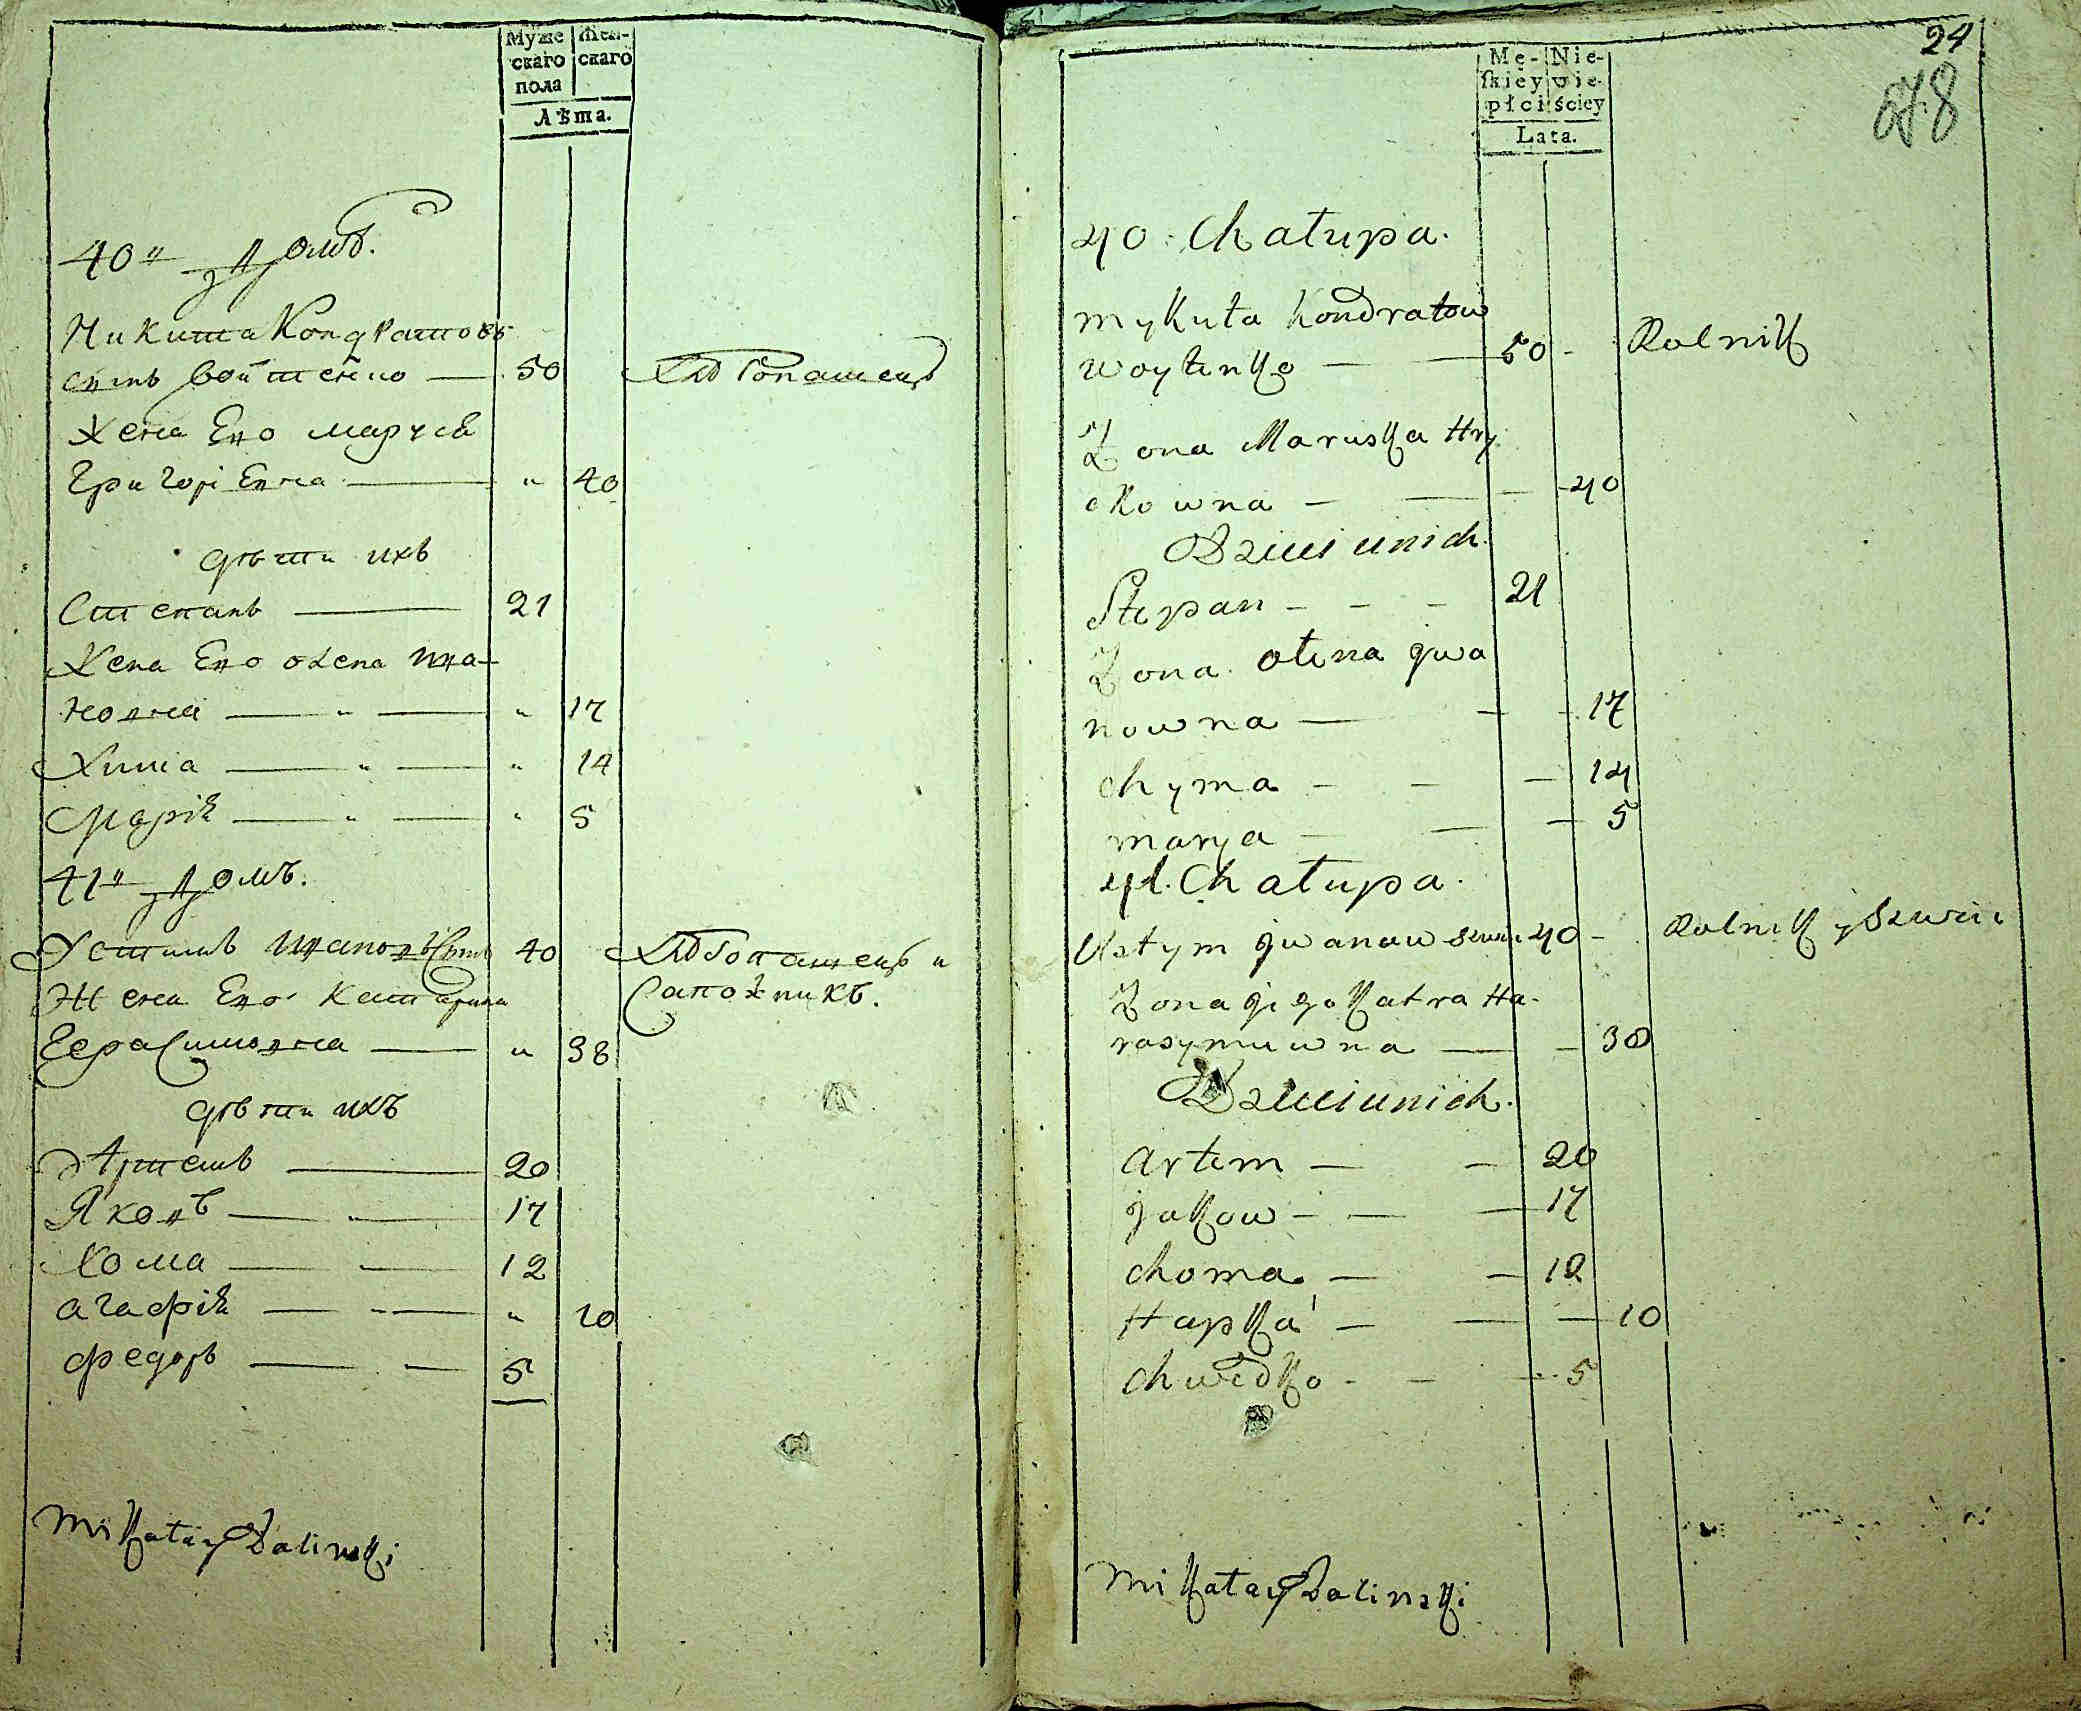 Муже
скаго
пола
Жен-
скаго
Лѣта.
40 Домъ.
Никита Кондратовъ
сынъ Войтенко — 50 Хлѣбопашецъ
Жена Ево Маруся
Григоріевна — „ 40
дѣти ихъ
Степанъ — 21
Жена Ево олена Ива-
новна — „ — „ 17
Химia — „ — „ 14
Марія — „ — „ 5
41 Домъ.
Устимъ Ивановъ 40 Хлѣбопашецъ и
Жена Ево Катарина Сапожникъ.
Герасимовна — „ 38
дѣти ихъ
Артемъ — 20
Яковъ — „ — 17
Хома — — 12
Агафія — „ — „ 10
Федоръ — — 5
Mikołay Balinski
24
678
Mę-
skiey
płci
Nie-
wie-
ściey
Lata.
40. Chałupa.
Mykita Kondratow
Woytenko — — 50 - Rolnik
Żona Maruska Hry
ckowna — — — 40
Dzieci ich.
Stepan - - - 21
Żona Olena Jwa
nowna — — - 17
Chyma - - — 14
Marya — — — 5
41. Chałupa.
Ustym Jwanow 40 - Rolnik y Szwiec
Żona jego Katra Ha-
rasymowna — — 38
Dzieci ich.
Artem — — 20
Jakow - — — 17
Choma — — 12
Hapka — — — 10
Chwedko - — - 5
Mikołay Balinski